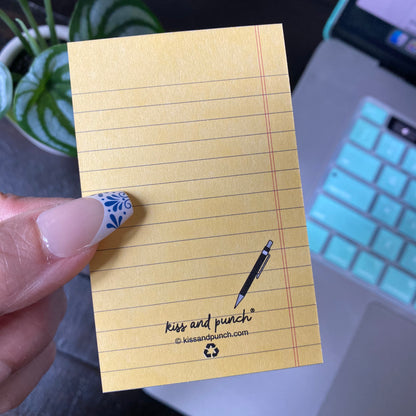 kiss and punch®
© kissandpunch.com